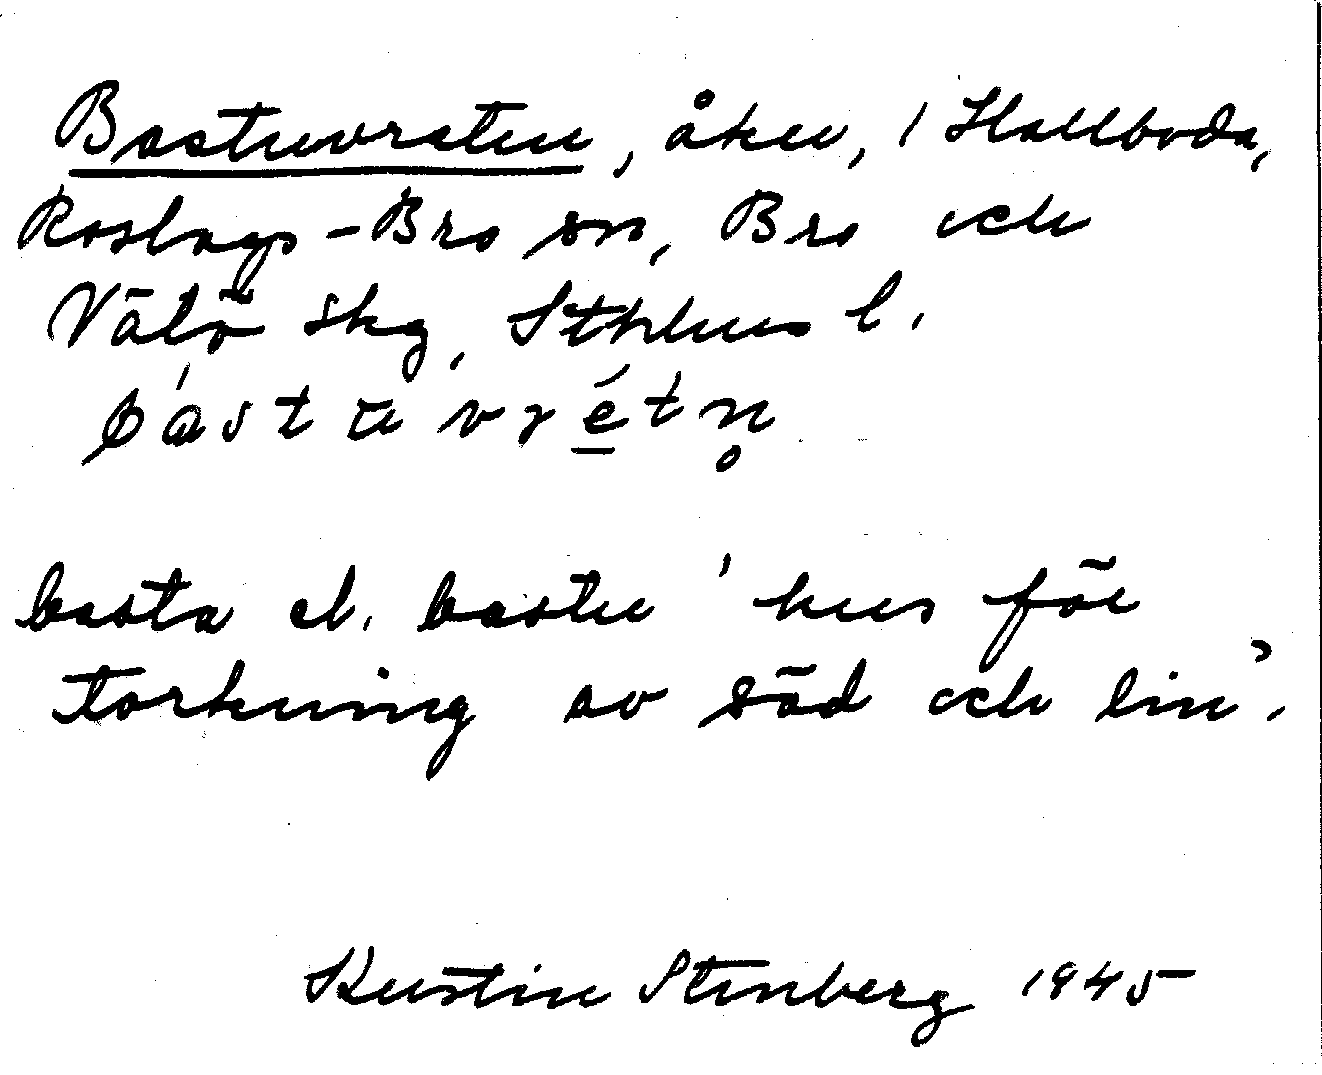 Bastuvreten, åker, / Hallboda,
Roslags-Bro sn, Bro och
Vätö skg, Sthlms l.
bástuvrétn̥
basta el. bastu 'hus för
torkning av säd och lin'.
Kerstin Stenberg 1945